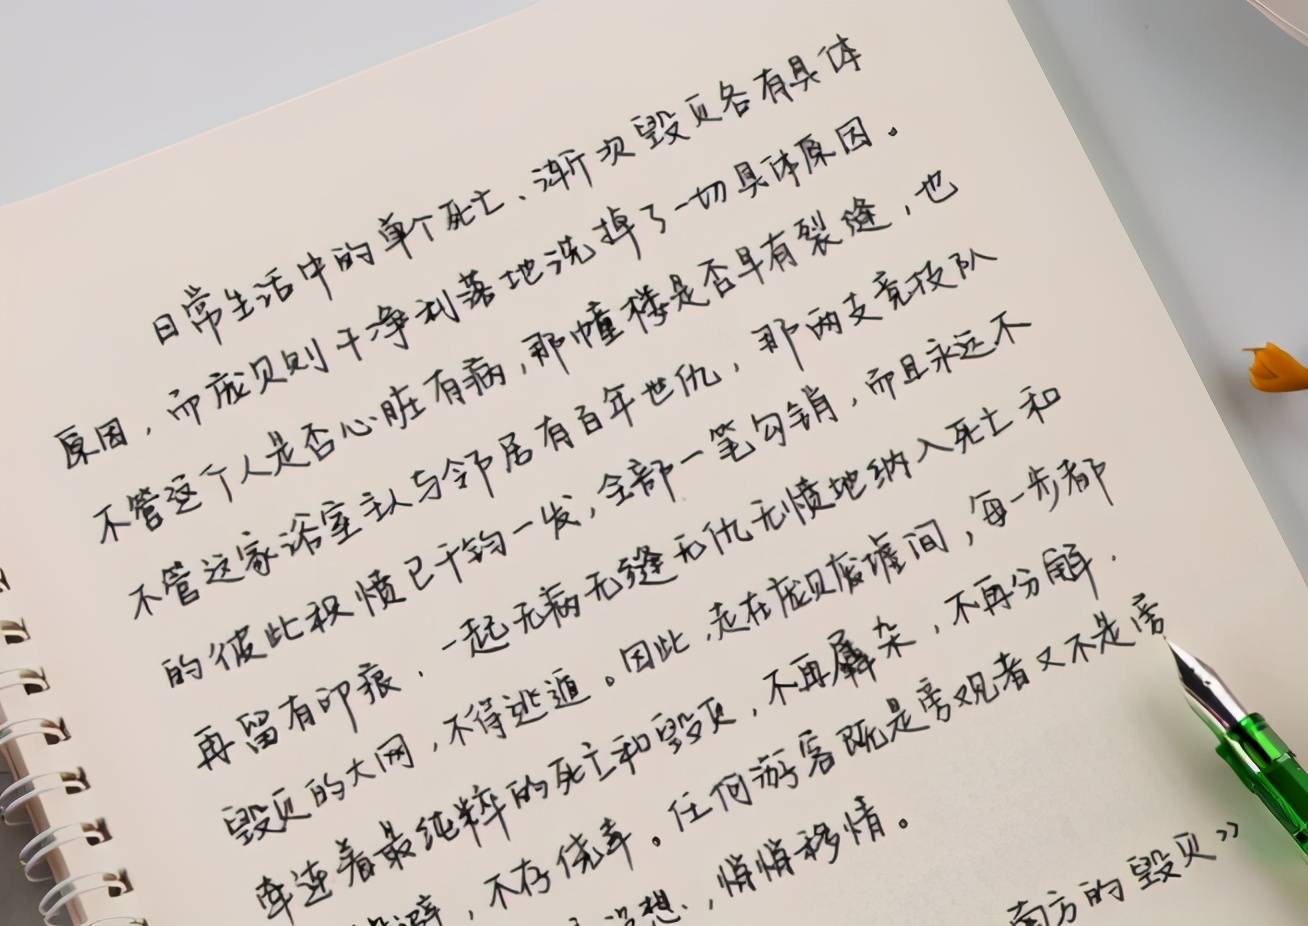 日常生活中的单个死亡、渐次毁灭各有具体
原因,而庞贝则干净利落地洗掉了一切具体原因。
不管这个人是否心脏有病,那幢楼是否早有裂缝,也
不管这家浴室主人与邻居有百年世仇,那两支竞技队
的彼此积愤已千钧一发,全部一笔勾销,而且永远不
再留有印痕.一起无病无缝无仇无愤地纳入死亡和
毁灭的大网,不得逃遁。因此,走在庞贝废墟间,每一步都
牵连着最纯粹的死亡和毁灭,不再羼杂,不再分解.
避,不存侥幸。任何游客既是旁观者又不是旁
设想,悄悄移情。
南方的毁灭》